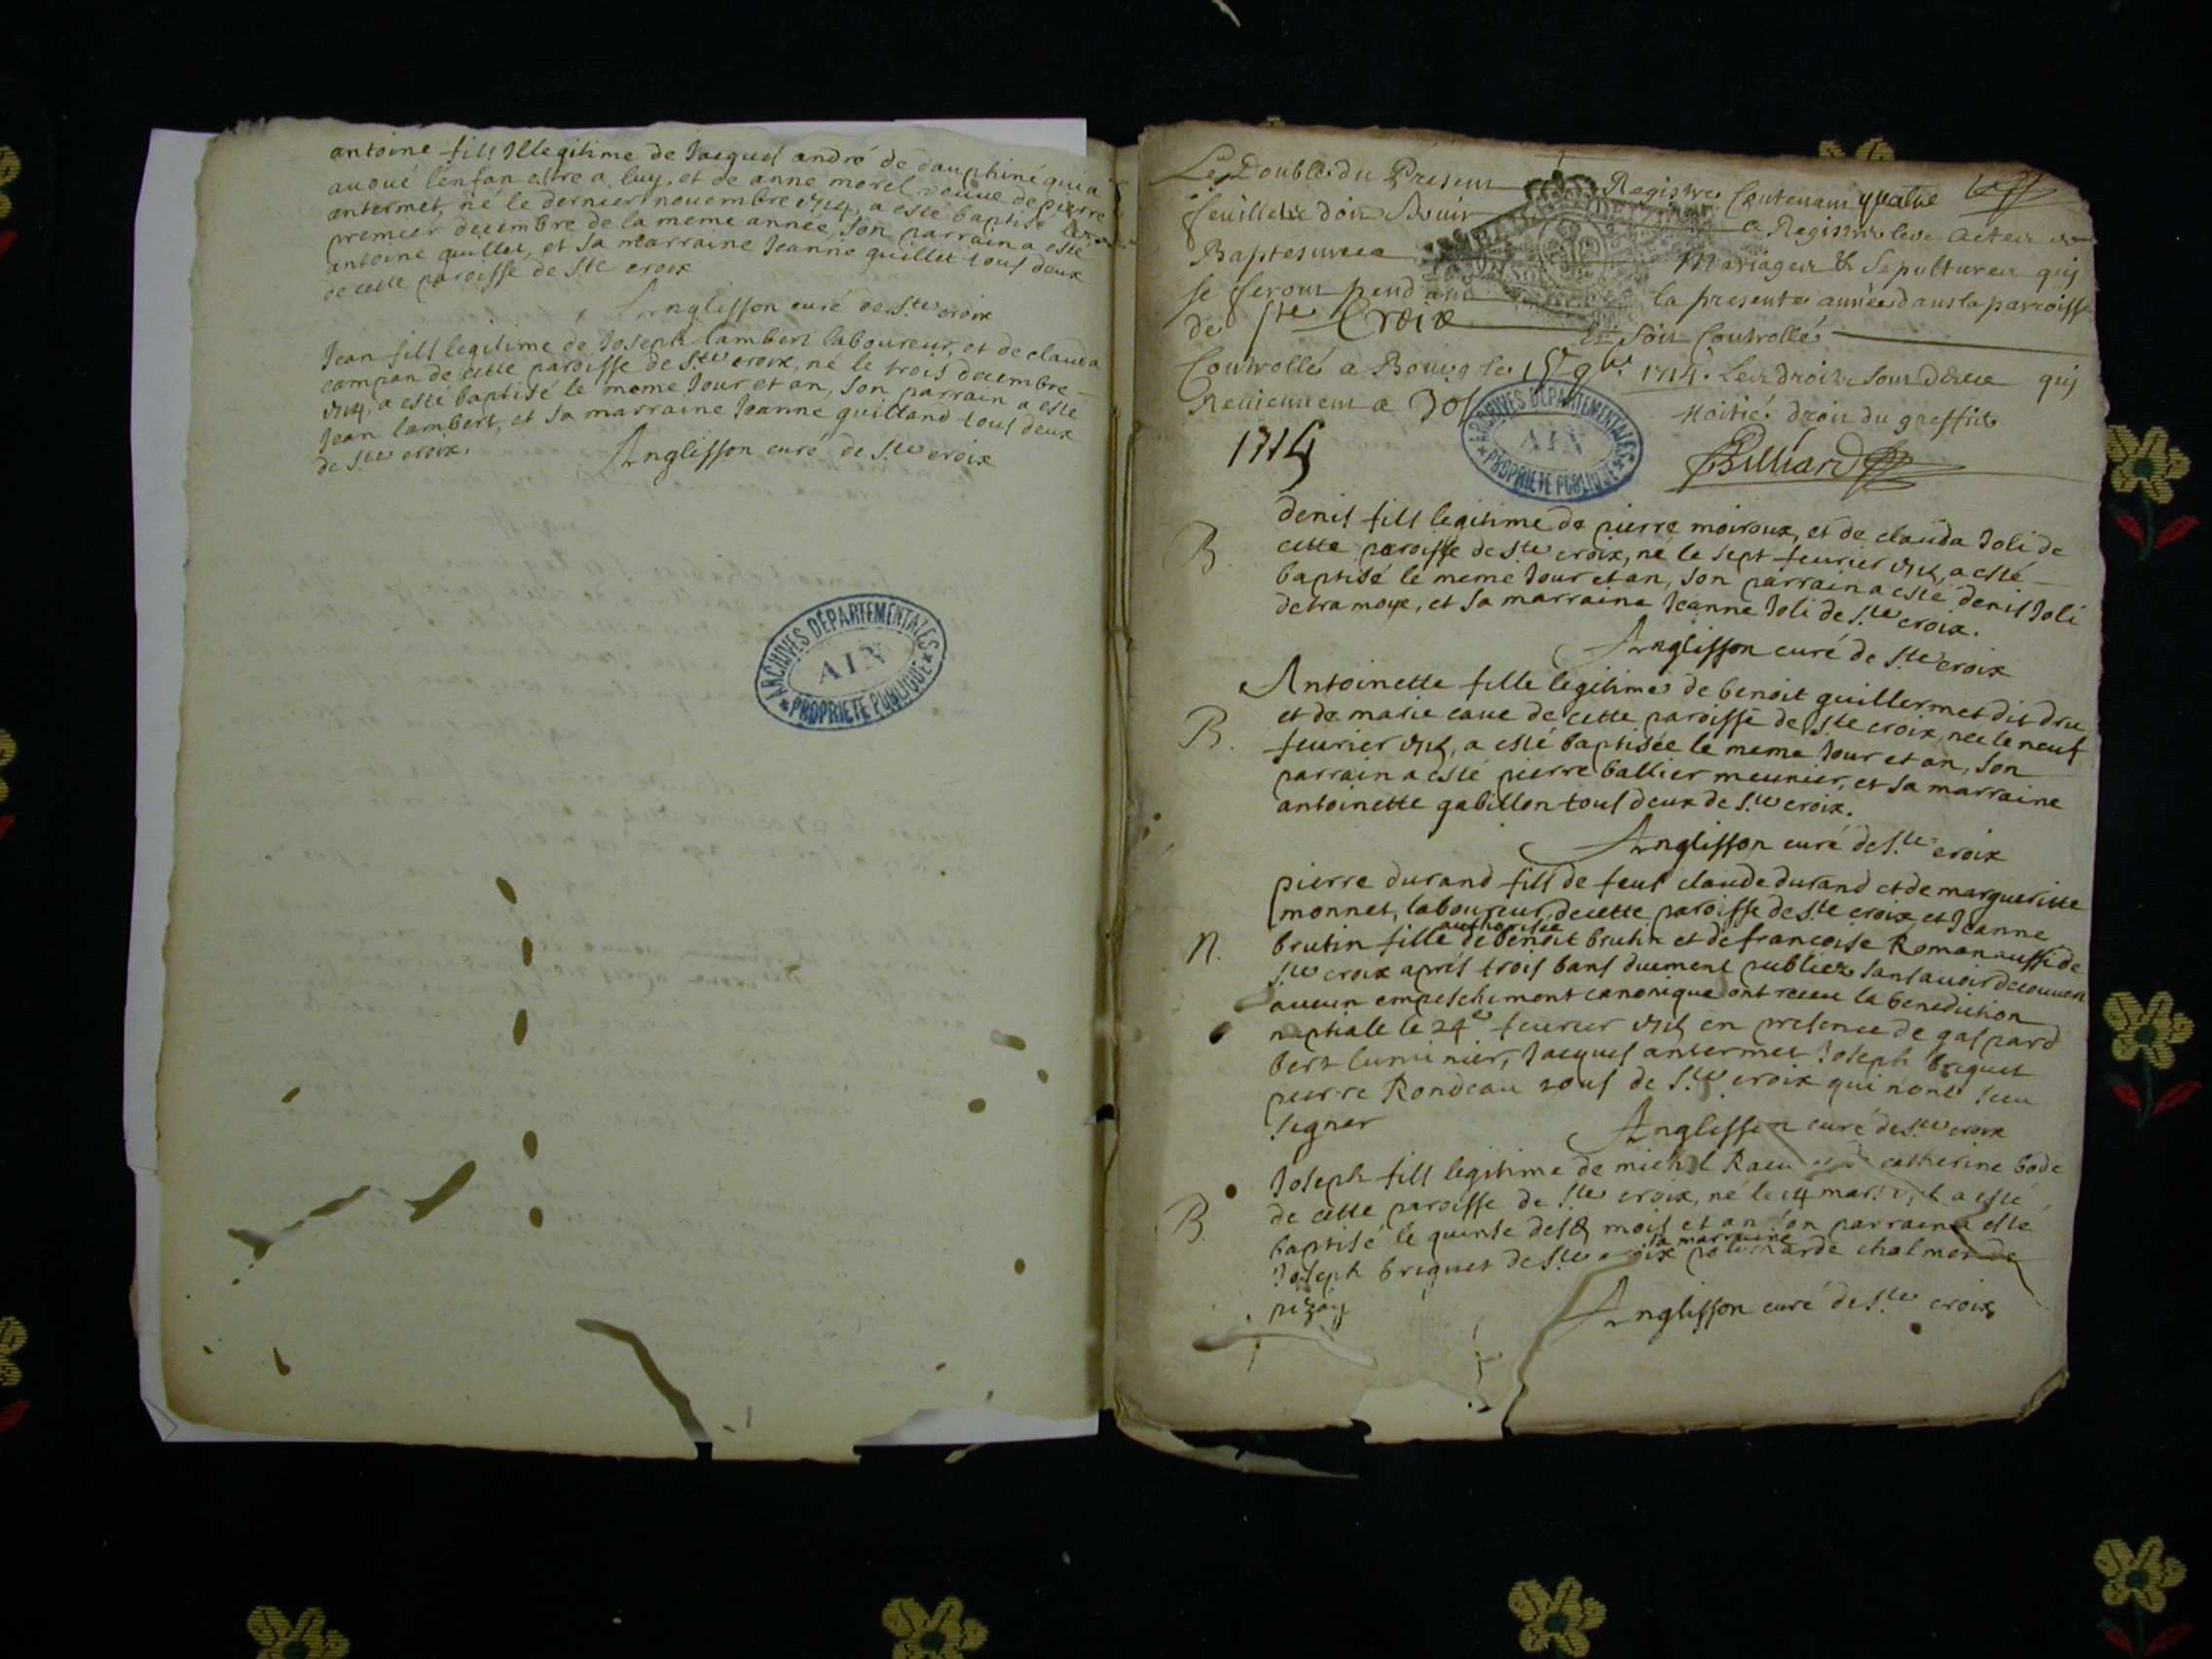 antoine fils Illegitime de Jacques andré de dauphiné qui a
auoué l'enfan estre a luy, et de anne morel veuue de pierre
antermet, né le dernier nouembre 1714, a esté baptisé le
premier decembre de la meme année, son parrain a esté
antoine quillet, et sa marraine Jeanne quillet tous deux
de cette paroisse de Ste croix
Anglisson curé de Ste croix
Jean fils legitime de Joseph lambert laboureur, et de clauda
campan de cette paroisse de Ste croix, né le trois decembre
1714, a esté baptisé le meme Jour et an, son parrain a esté
Jean lambert, et sa marraine Jeanne guilland tous deux
de Ste croix.
Anglisson curé de Ste croix
ARCHIVES DEPARTEMENTALES
AIN
PROPRIETE PUBLIQUE
Le Double du Présent Registre Contenant quatre
feuillets doit seruir a Registrer les actes de
Baptesmes Mariages & Sepultures qui
se feront pendant la presente année dans la parroisse
de Ste Croix Et soit Controllé
Controllé a Bourg le 15 9bre 1714. Les droits sont qui
Reuiennent a 30s Moitié droit du greffier
1715
Billiard
ARCHIVES DEPARTEMENTALES
AIN
PROPRIETE PUBLIQUE
denis fils legitime de pierre moiroux, et de clauda Joli de
B. cette paroisse de Ste croix, né le sept feurier 1715, a esté
baptisé le meme Jour et an, son parrain a esté denis Joli
de tramoye, et sa marraine Jeanne Joli de Ste croix.
Anglisson curé de Ste croix
Antoinette fille legitime de benoit guillermet dit dru
et de marie caue de cette paroisse de Ste croix, née le neuf
B. feurier 1715, a esté baptisée le meme Jour et an, son
parrain a esté pierre ballier meunier, et sa marraine
antoinette gabillon tous deux de Ste croix.
Anglisson curé de Ste croix
pierre durand fils de feus claude durand et de margueritte
monnet, laboureur, de cette paroisse de Ste croix, et Jeanne
authorisée
N. brutin fille de benoit brutin et de francoise Roman aussi de
Ste croix aprés trois bans duement publiez sans auoir decouuert
aucun empeschement canonique ont receu la benediction
nuptiale le 24e feurier 1715 en presence de gaspard
bert luminier, Jacques antermet Joseph briquet
pierre Rondeau tous de Ste croix qui n'ont sceu
signer
Anglisson curé de Ste croix
Joseph fils legitime de michel et de catherine bode
de cette paroisse de Ste croix, né le 14 mars a esté
B. baptisé le quinse desd mois et an son parrain a esté
sa marraine
Joseph briquet de Ste croix chalmet de
pizay
Anglisson curé de Ste croix